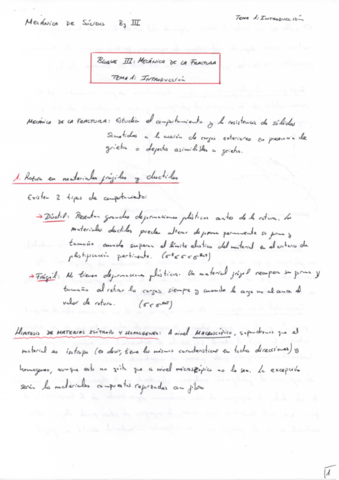 MECÁNICA DE SÓLIDOS Bq III
TEMA 1: INTRODUCCIÓN
BLOQUE III: MECÁNICA DE LA FRACTURA
TEMA 1: INTRODUCCIÓN
MECÁNICA DE LA FRACTURA: Estudian el comportamiento y la resistencia de sólidos
sometidos a la acción de cargas exteriores en presencia de
grietas o defectos asimilables a grietas.
1. Rotura en materiales frágiles y dúctiles
Existen 2 tipos de comportamiento:
→ Dúctil: Presentan grandes deformaciones plásticas antes de la rotura. Los
materiales dúctiles pueden alterar de forma permanente su forma y
tamaño cuando superan el límite elástico del material en el entorno de
plastificación pertinente.
→ Frágil: No tienen deformaciones plásticas. Un material frágil recupera su forma y
tamaño al retirar las cargas, siempre y cuando la carga no alcance el
valor de rotura.
HIPÓTESIS DE MATERIAL ISÓTROPO Y HOMOGÉNEO: A nivel MACROSCÓPICO, supondremos que el
material es isótropo (es decir, tiene las mismas características en todas direcciones) y
homogéneo, aunque esto no quita que a nivel microscópico no lo sea. La excepción
serían los materiales compuestos reforzados con fibra
1